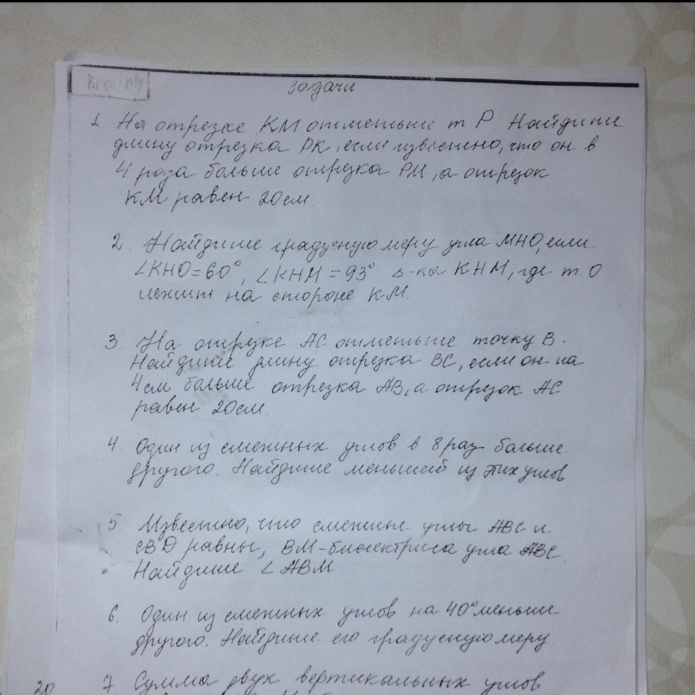 задачи
1 На отрезке КМ отметьте т Р. Найдите
длину отрезка РК, если известно, что он в
4 раза больше отрезка РМ, а отрезок
КМ равен 20см.
2. Найдите градусную меру угла МНО, если
∠КНО=60°, ∠КНМ=93° ∆-ка КНМ, где т О
лежит на стороне КМ.
3. На отрезке АС отметьте точку В.
Найдите длину отрезка ВС, если он на
4см больше отрезка АВ, а отрезок АС
равен 20см
4. Один из смежных углов в 8 раз больше
другого. Найдите меньший из этих углов
5 Известно, что смежные углы АВС и
СВD равны, ВМ-биссектриса угла АВС
Найдите ∠АВМ
6. Один из смежных углов на 40° меньше
другого. Найдите его градусную меру
20 7 Сумма двух вертикальных углов